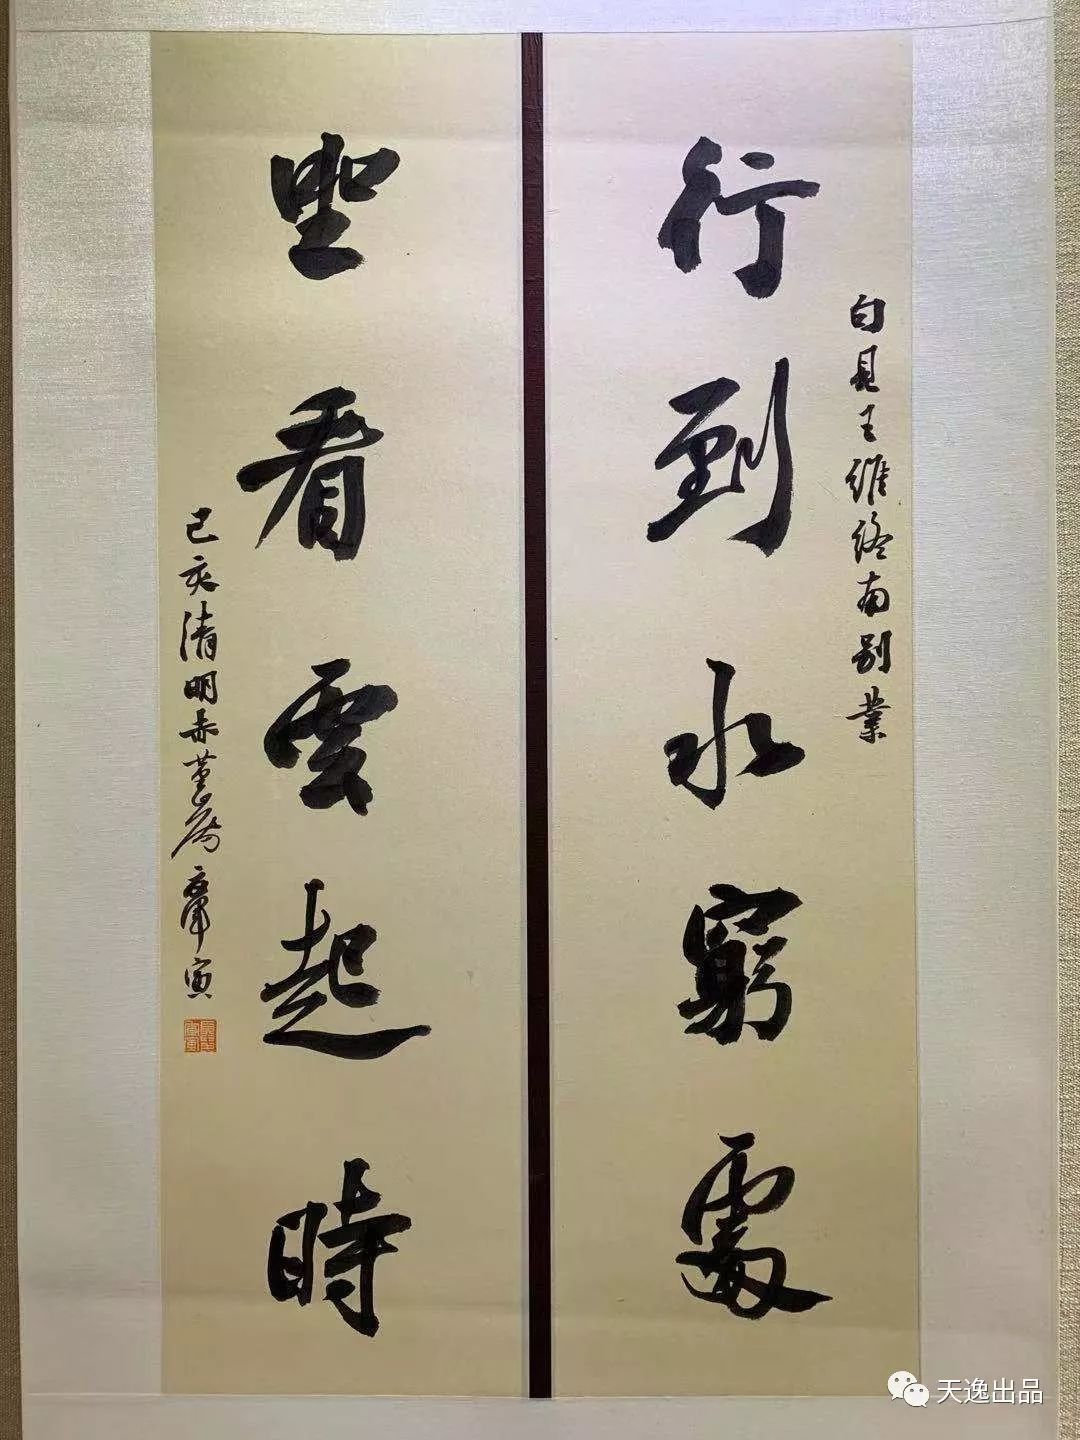 行到水窮處
句見王維終南別業
坐看雲起時
己亥清明赤堇
寅
天逸出品